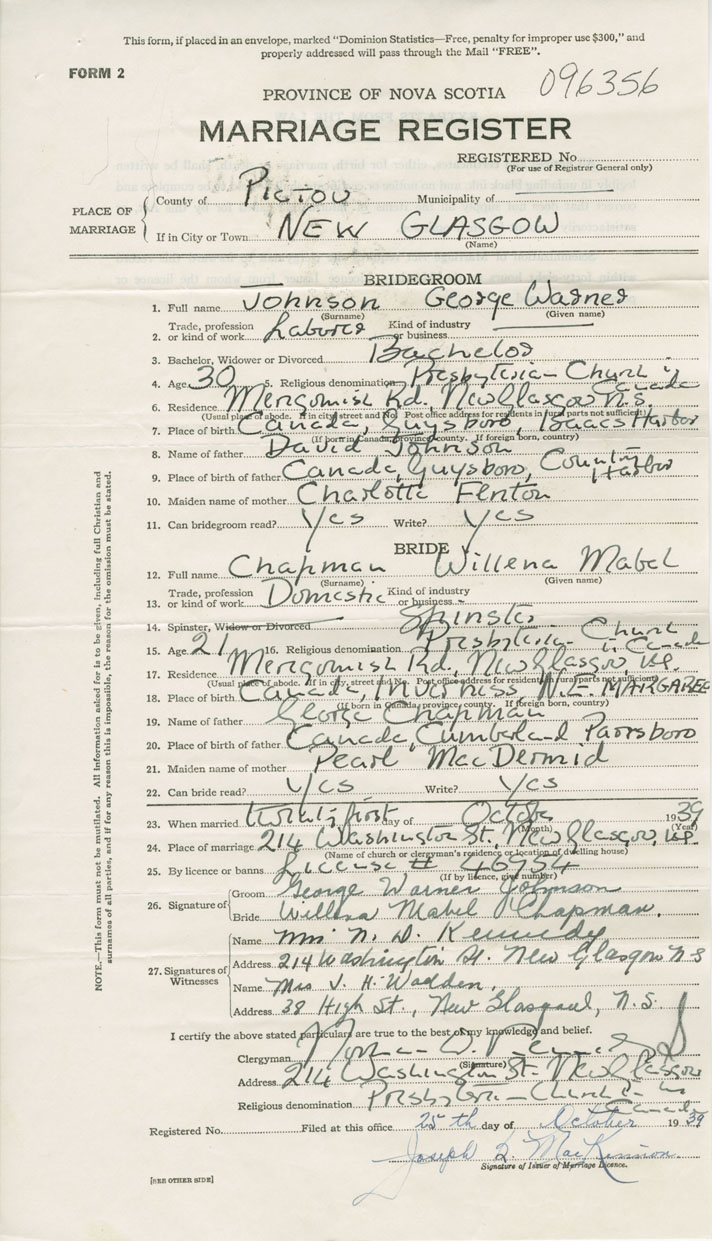 This form, if placed in an envelope, marked "Dominion Statistics—Free, penalty for improper use $300," and
properly addressed will pass through the Mail "FREE".
FORM 2
096356
PROVINCE OF NOVA SCOTIA
MARRIAGE REGISTER
REGISTERED No.
(For use of Registrar General only)
PLACE OF MARRIAGE
County of Pictou Municipality of
If in City or Town NEW GLASGOW
(Name)
BRIDEGROOM
1. Full name Johnson George Warner
(Surname) (Given name)
2. Trade, profession or kind of work Laborer Kind of industry or business
3. Bachelor, Widower or Divorced Bachelor
4. Age 30 5. Religious denomination Presbyterian Church in Canada
6. Residence Merigomish Rd. New Glasgow N.S.
(Usual place of abode. If in city street and No. Post office address for residents in rural parts not sufficient)
7. Place of birth Canada, Guysboro, Isaacs Harbor
(If born in Canada, province, county. If foreign born, country)
8. Name of father David Johnson
9. Place of birth of father Canada, Guysboro, Country Harbor
10. Maiden name of mother Charlotte Fenton
11. Can bridegroom read? Yes Write? Yes
BRIDE
12. Full name Chapman Willena Mabel
(Surname) (Given name)
13. Trade, profession or kind of work Domestic Kind of industry or business
14. Spinster, Widow or Divorced Spinster
15. Age 21 16. Religious denomination Presbyterian Church in Canada
17. Residence Merigomish Rd., New Glasgow, N.S.
(Usual place of abode. If in city street and No. Post office address for residents in rural parts not sufficient)
18. Place of birth Canada, Inverness, N.E. MARGAREE
(If born in Canada, province, county. If foreign born, country)
19. Name of father George Chapman
20. Place of birth of father Canada, Cumberland Parrsboro
21. Maiden name of mother Pearl MacDermid
22. Can bride read? Yes Write? Yes
23. When married twenty first day of October 1939
(Month) (Year)
24. Place of marriage 214 Washington St., New Glasgow, N.S.
(Name of church or clergyman's residence or location of dwelling house)
25. By licence or banns License # 46754
(If by licence, give number)
26. Signature of
Groom George Warner Johnson
Bride Willena Mabel Chapman.
27. Signatures of Witnesses
Name Mrs. N. D. Kennedy
Address 214 Washington St. New Glasgow N S
Name Mrs J. H. Wadden,
Address 38 High St., New Glasgow, N.S.
I certify the above stated particulars are true to the best of my knowledge and belief.
Clergyman Norman D. Kennedy
(Signature)
Address 214 Washington St. New Glasgow
Religious denomination Presbyterian Church in Canada
Registered No. Filed at this office 25th day of October 1939
Joseph MacKinnon
Signature of Issuer of Marriage Licence.
[SEE OTHER SIDE]
NOTE.—This form must not be mutilated. All information asked for is to be given, including full Christian and
surnames of all parties, and if for any reason this is impossible, the reason for the omission must be stated.